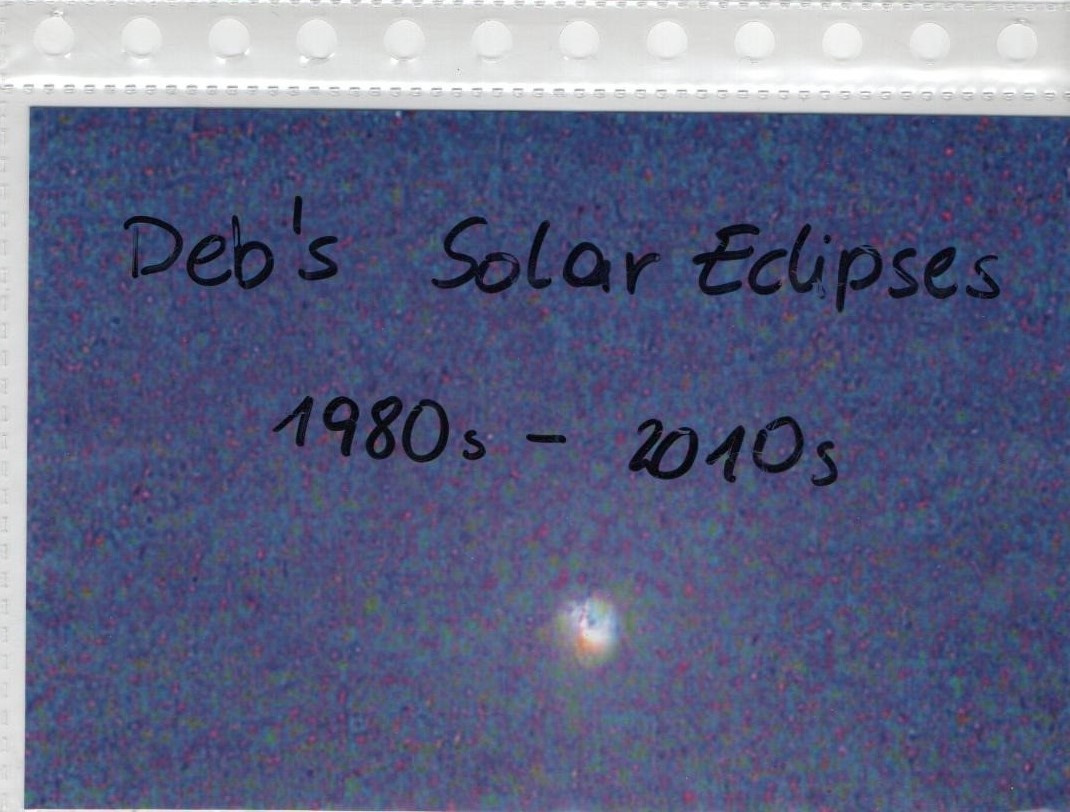 Deb's Solar Eclipses
1980s - 2010s